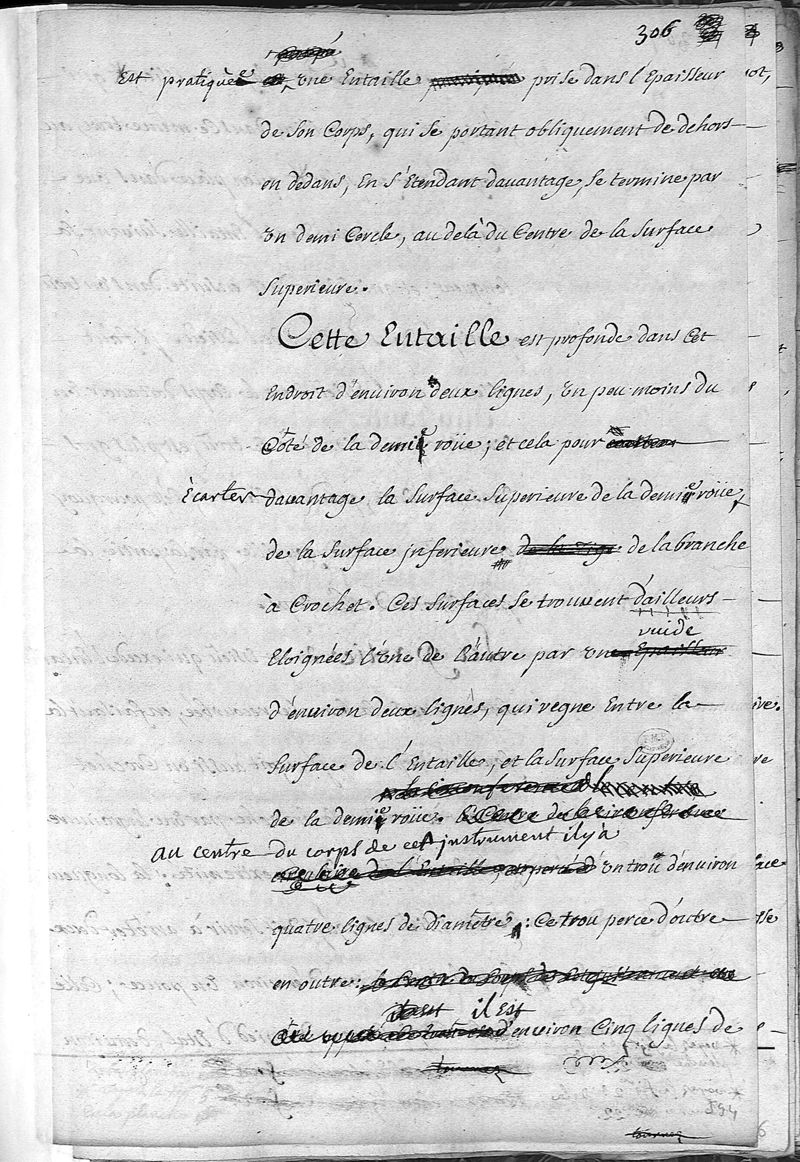 306
Est pratiquée une Entaille prise dans l'Epaisseur
de son Corps, qui se portant obliquement de dehors
en dedans, En s'Etendant davantage, se termine par
un demi Cercle, au delà du Centre de la surface
superieure.
Cette Entaille est profonde dans cet
Endroit d'environ deux lignes, un peu moins du
Côté de la demie roue; et cela pour
Ecarter davantage la surface superieure de la demie roüe,
de la surface inferieure de la branche
à Crochet. Ces surfaces se trouvent d'ailleurs
vuide
Eloignées l'une de l'autre par un
d'environ deux lignes, qui regne Entre la
surface de l'Entaille, et la surface superieure
de la demie roüe.
au centre du corps de cet instrument il y a
un trou d'environ
quatre lignes de diamètre: Ce trou perce d'outre
en outre:
il Est
d'environ Cinq lignes de